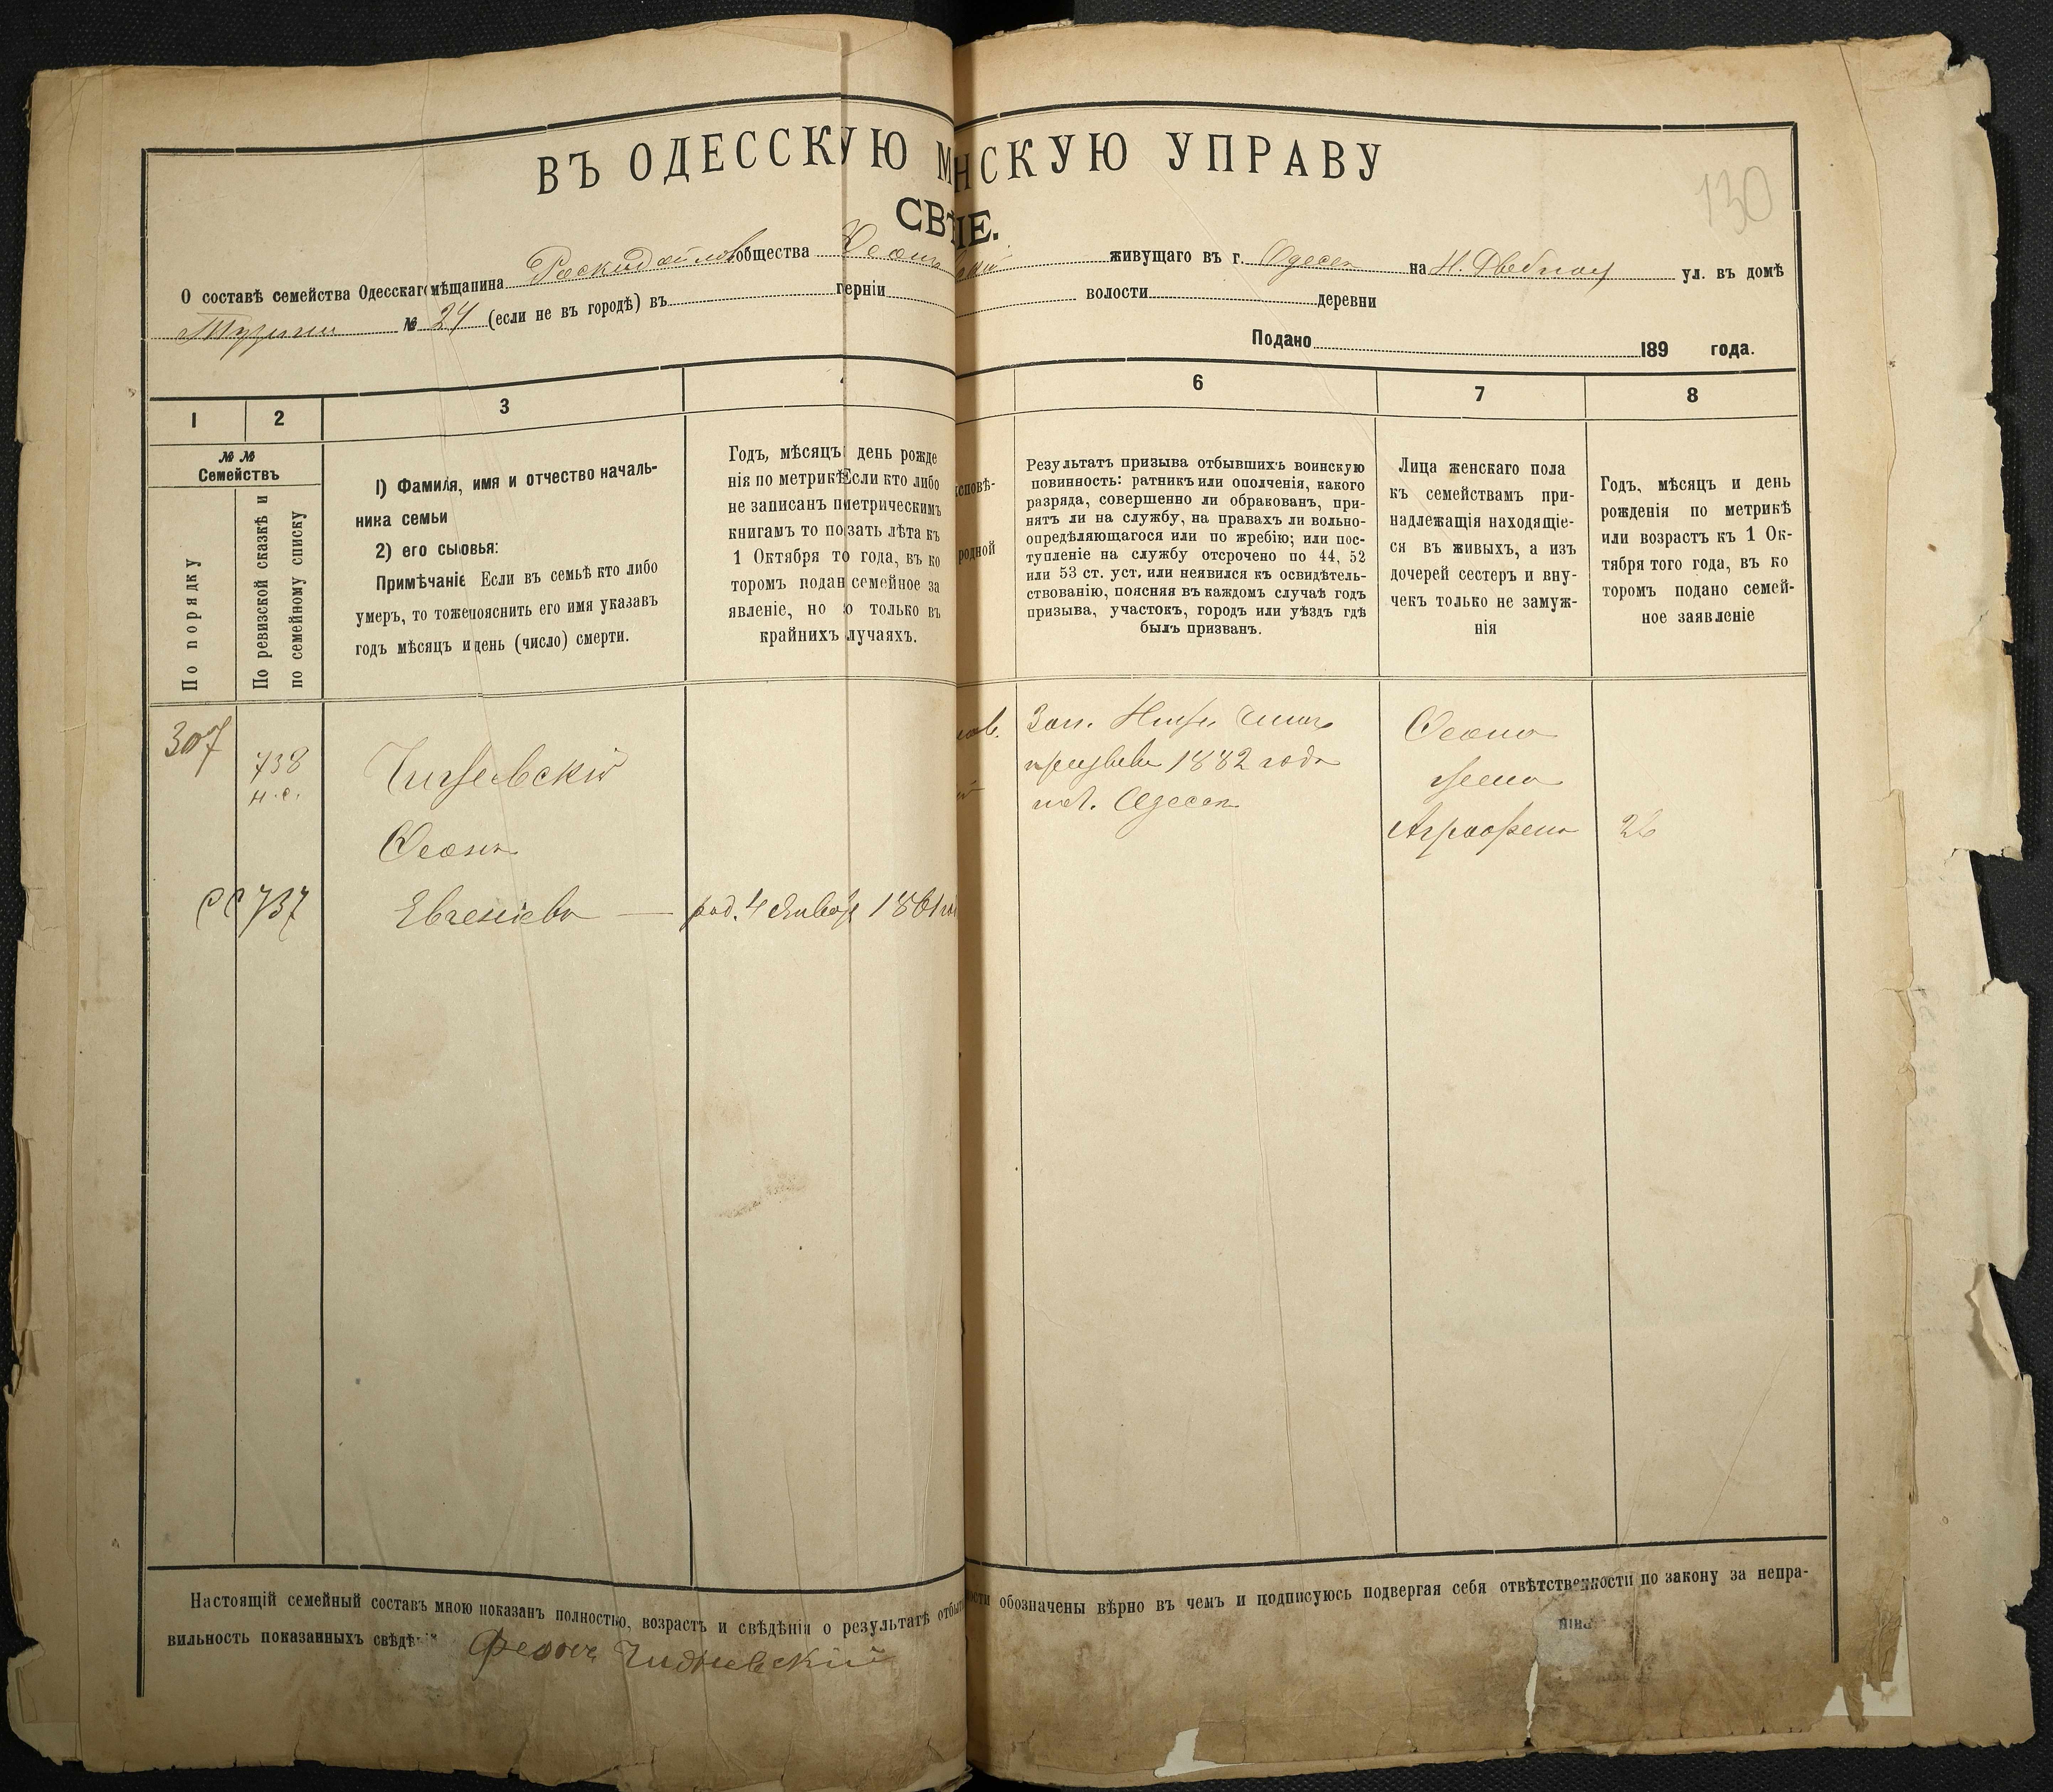 130
ВЪ ОДЕССКУЮ М НСКУЮ УПРАВУ
СВѢ IE.
О составѣ семейства Одесскаго мѣщанина Раскидайлов общества живущаго въ г. Одесса на ул. въ домѣ
№ 24 (если не въ городѣ) въ герніи волости деревни
Подано 189 года.
1 2 3 6 7 8
№ №
Семействъ
По порядку
По ревизской сказкѣ и
по семейному списку
1) Фамилія, имя и отчество началь-
ника семьи
2) его сыновья:
Примѣчаніе Если въ семьѣ кто либо
умеръ, то тоже пояснить его имя указавъ
годъ мѣсяцъ и день (число) смерти.
Годъ, мѣсяцъ день рожде
нія по метрикѣ Если кто либо
не записанъ п метрическимъ
книгамъ то по зать лѣта къ
1 Октября то года, въ ко
торомъ подан семейное за
явленіе, но о только въ
крайнихъ лучаяхъ.
исповѣ-
родной
Результатъ призыва отбывшихъ воинскую
повинность: ратникъ или ополченія, какого
разряда, совершенно ли обракованъ, при-
нятъ ли на службу, на правахъ ли вольно-
опредѣляющагося или по жребію; или пос-
тупленіе на службу отсрочено по 44, 52
или 53 ст. уст. или неявился къ освидѣтель-
ствованію, поясняя въ каждомъ случаѣ годъ
призыва, участокъ, городъ или уѣздъ гдѣ
былъ призванъ.
Лица женскаго пола
къ семействамъ при-
надлежащія находящіе-
ся въ живыхъ, а изъ
дочерей сестеръ и вну-
чекъ только не замуж-
нія
Годъ, мѣсяцъ и день
рожденія по метрикѣ
или возрастъ къ 1 Ок-
тября того года, въ ко
торомъ подано семей-
ное заявленіе
307
738
н.с.
Феона
Евгеніевъ — род. 4 Января 1861
СС 737
Зап.
призыва 1882 года
Одесса
Феона
жена
Агрофена 26
Настоящій семейный составъ мною показанъ полностью, возрастъ и свѣдѣнія о результатѣ отбыт ности обозначены вѣрно въ чемъ и подписуюсь подвергая себя отвѣтственности по закону за непра-
вильность показанныхъ свѣдѣній